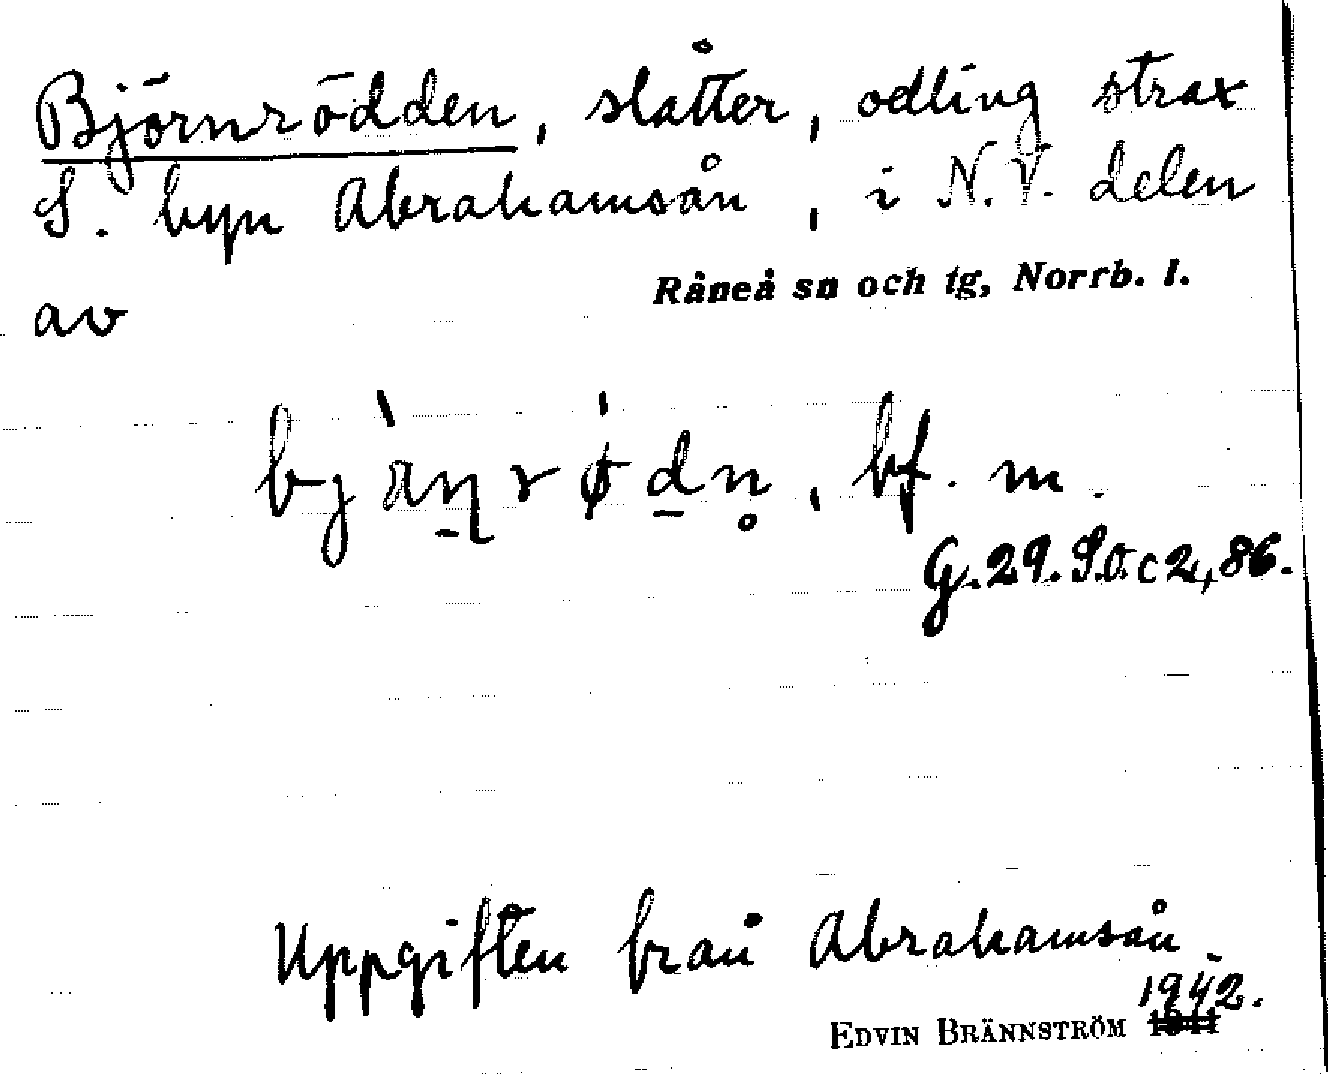 Björnrödden, slåtter, odling strax
S. byn Abrahamsån, i N.V. delen
Råneå sn och tg, Norrb. l.
av
bf. m.
G. 29. S.O. c 2, 86.
Uppgiften från Abrahamsån
1942.
EDVIN BRÄNNSTRÖM 1941